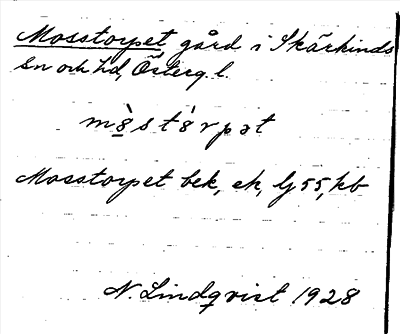 Mosstorpet gård i Skärkinds
sn och hd, Österg. l.
mò̲sstó̀rpət
Mosstorpet bek, ek, Lj 55, kb
N. Lindqvist 1928